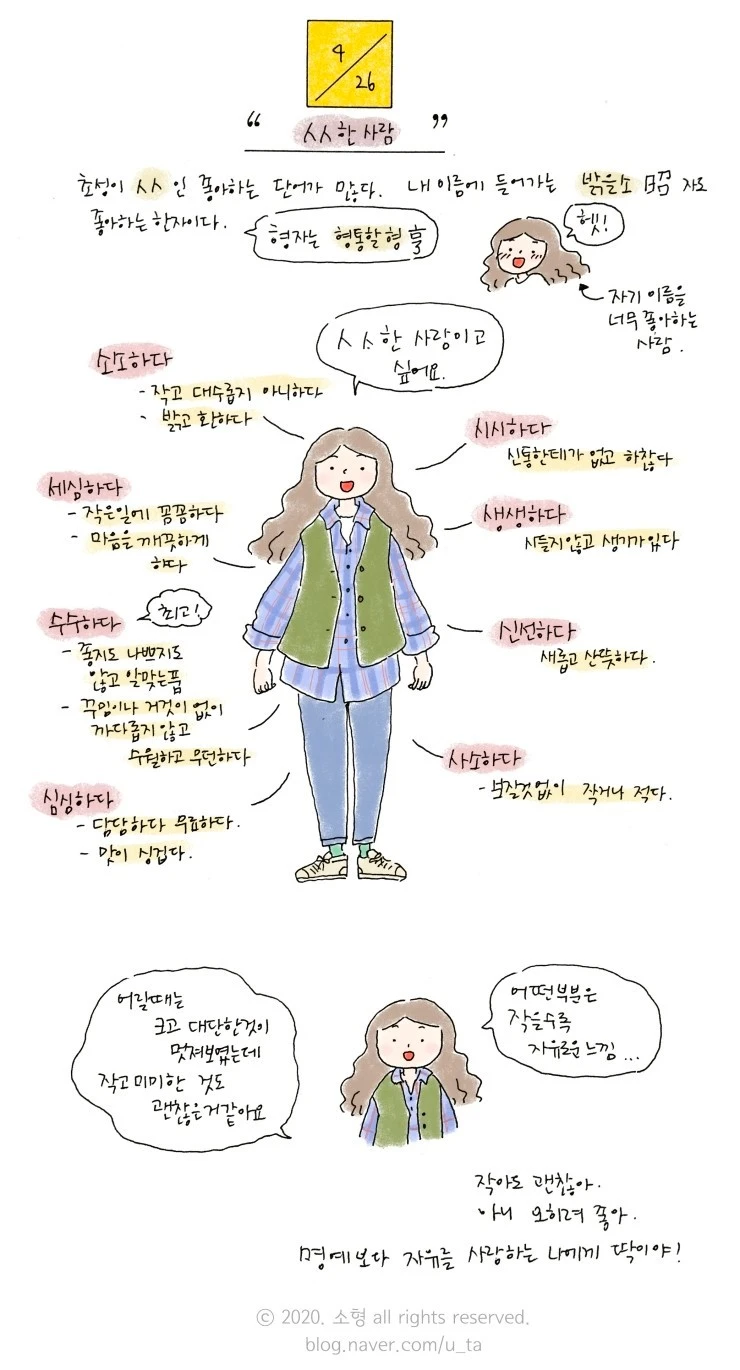 4/26
“ ㅅㅅ한 사람 ”
초성이 ㅅㅅ인 좋아하는 단어가 많다. 내 이름에 들어가는 밝을소 昭 자도
좋아하는 한자이다.
형자는 형통할형 亨
헷!
자기 이름을
너무 좋아하는
사람.
ㅅㅅ한 사람이고
싶어요.
소소하다
- 작고 대수롭지 아니하다
- 밝고 환하다
시시하다
신통한데가 없고 하찮다
세심하다
- 작은일에 꼼꼼하다
- 마음을 깨끗하게
하다
생생하다
시들지않고 생기가있다
수수하다
최고!
- 좋지도 나쁘지도
않고 알맞는품
- 꾸밈이나 거짓이 없이
까다롭지않고
수월하고 무던하다
신선하다
새롭고 산뜻하다.
사소하다
- 보잘것없이 작거나 적다.
심심하다
- 담담하다 무료하다.
- 맛이 싱겁다.
어릴때는
크고 대단한것이
멋져보였는데
작고미미한 것도
괜찮은거같아요
어떤부분은
작을수록
자유로운느낌...
작아도 괜찮아.
아니 오히려 좋아.
명예보다 자유를 사랑하는 나에게 딱이야!
ⓒ 2020. 소형 all rights reserved.
blog.naver.com/u_ta